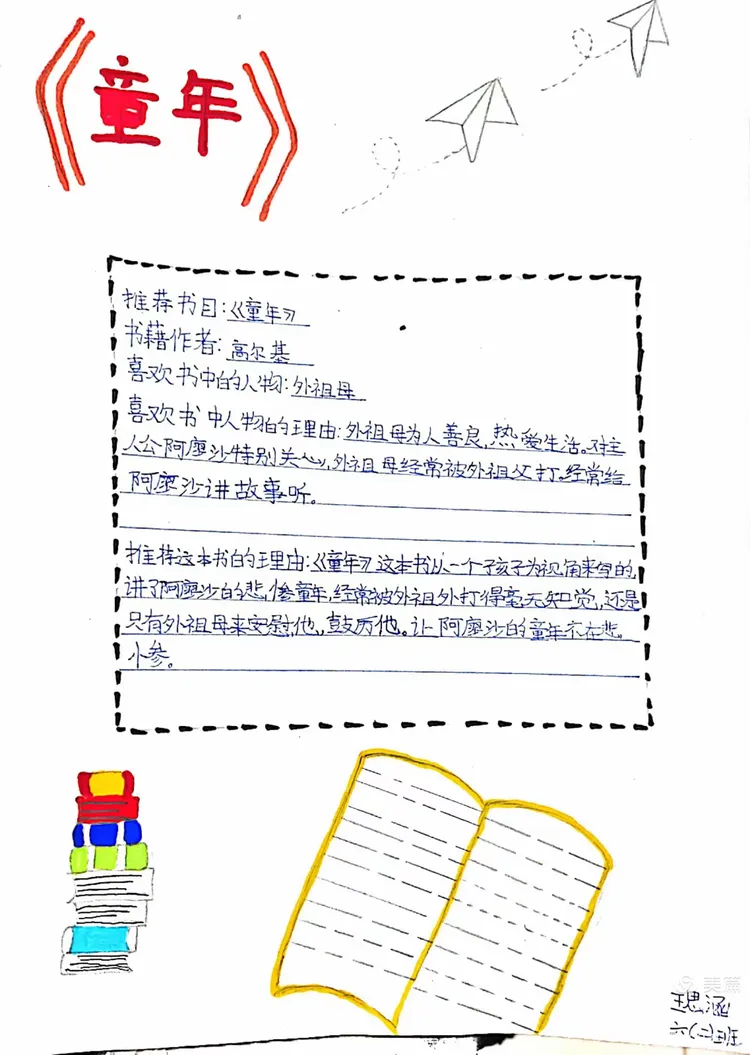 《童年》
推荐书目:《童年》
书籍作者:高尔基
喜欢书中的人物:外祖母
喜欢书中人物的理由:外祖母为人善良,热爱生活。对主
人公阿廖沙特别关心,外祖母经常被外祖父打。经常给
阿廖沙讲故事听。
推荐这本书的理由:《童年》这本书以一个孩子为视角来写的,
讲了阿廖沙的悲惨童年,经常被外祖外打得毫无知觉,还是
只有外祖母来安慰他,鼓厉他。让阿廖沙的童年不在悲
惨。
美篇
王思涵
六(二)班